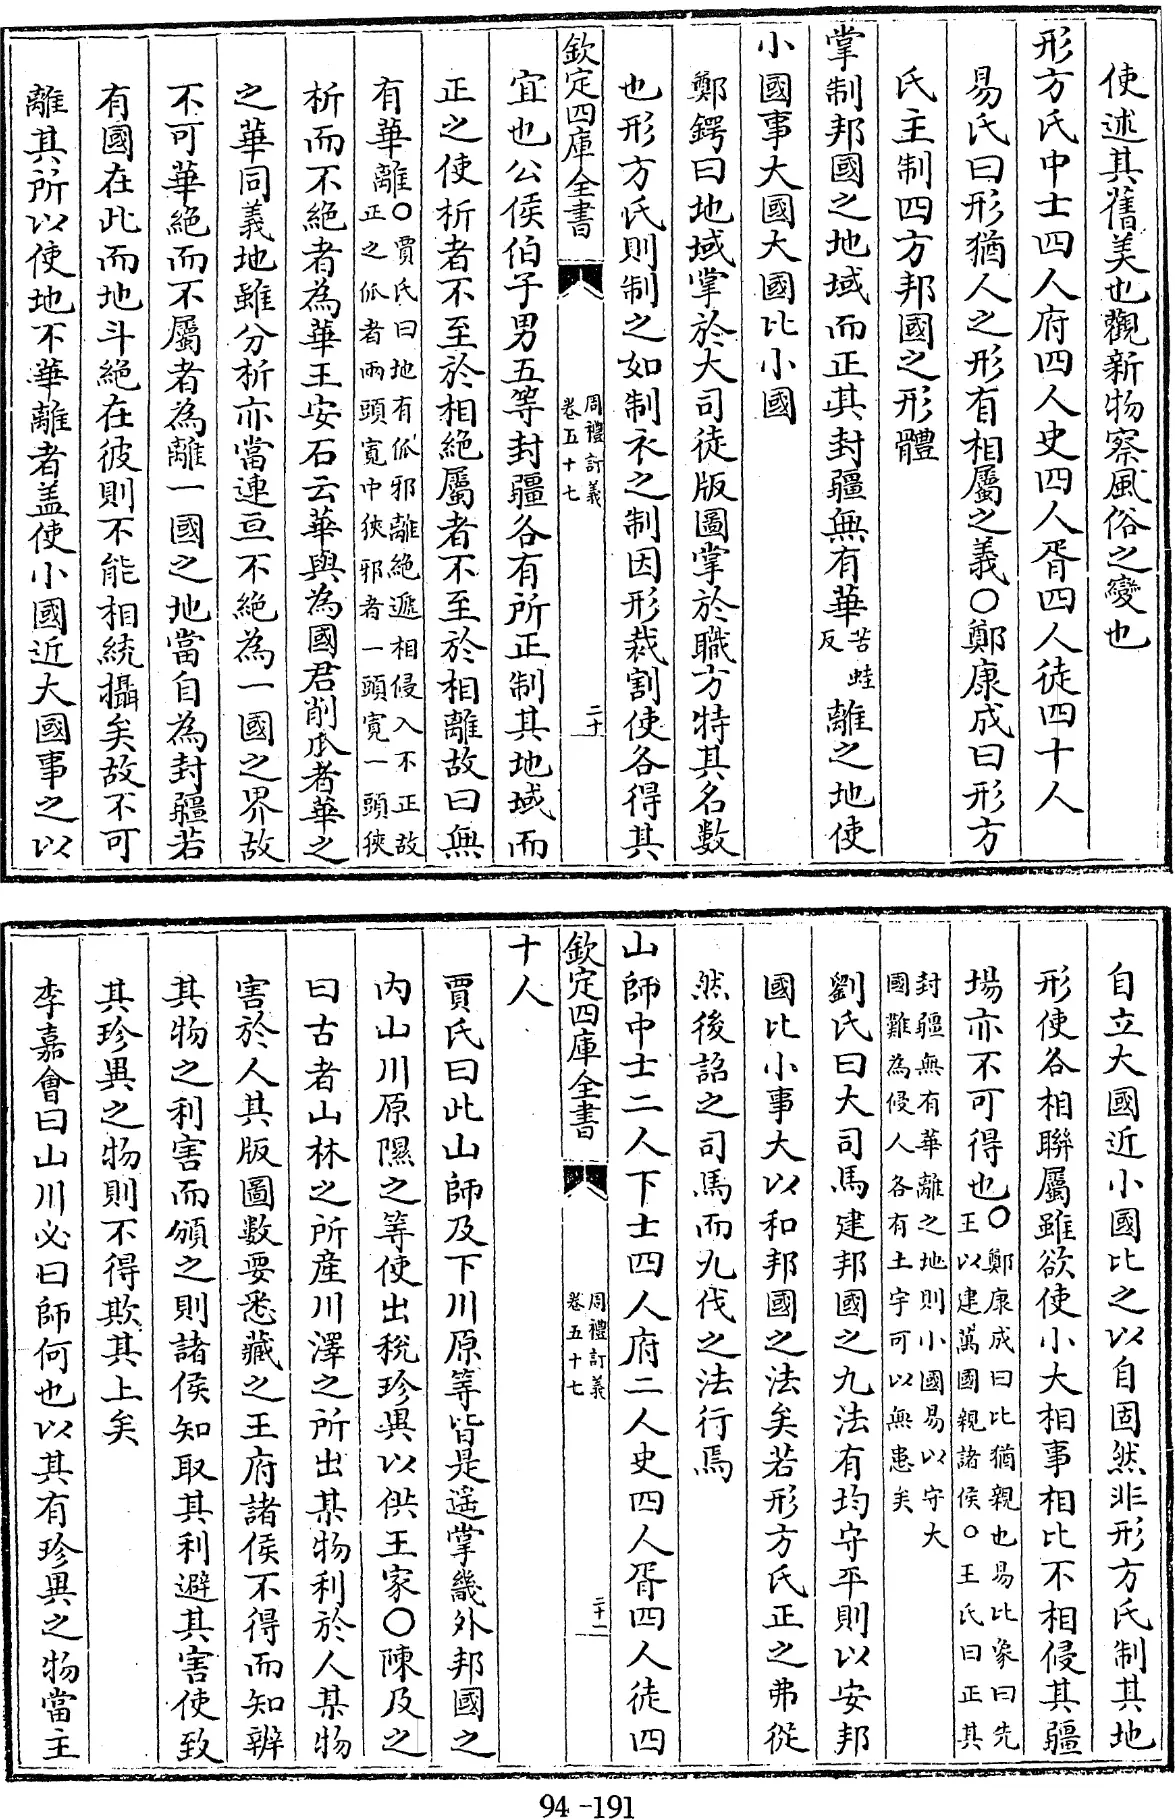 使述其舊美也觀新物察風俗之變也
形方氏中士四人府四人史四人胥四人徒四十人
易氏曰形猶人之形有相屬之義○鄭康成曰形方
氏主制四方邦國之形體
掌制邦國之地域而正其封疆無有華苦蛙反離之地使
小國事大國大國比小國
鄭鍔曰地域掌於大司徒版圖掌於職方特其名數
也形方氏則制之如制衣之制因形裁割使各得其
欽定四庫全書 周禮訂義 卷五十七 二十
宜也公侯伯子男五等封疆各有所正制其地域而
正之使析者不至於相絶屬者不至於相離故曰無
有華離○賈氏曰地有㼌邪離絶遞相侵入不正故正之㼌者兩頭寛中狹邪者一頭寛一頭狹
析而不絶者為華王安石云華與為國君削瓜者華之
之華同義地雖分析亦當連亘不絶為一國之界故
不可華絶而不屬者為離一國之地當自為封疆若
有國在此而地斗絶在彼則不能相統攝矣故不可
離其所以使地不華離者盖使小國近大國事之以
自立大國近小國比之以自固然非形方氏制其地
形使各相聯屬雖欲使小大相事相比不相侵其疆
場亦不可得也○鄭康成曰比猶親也易比象曰先王以建萬國親諸侯○王氏曰正其
封疆無有華離之地則小國易以守大國難為侵人各有土宇可以無患矣
劉氏曰大司馬建邦國之九法有均守平則以安邦
國比小事大以和邦國之法矣若形方氏正之弗從
然後詔之司馬而九伐之法行焉
山師中士二人下士四人府二人史四人胥四人徒四
欽定四庫全書 周禮訂義 卷五十七 二十一
十人
賈氏曰此山師及下川原等皆是遥掌畿外邦國之
内山川原隰之等使出稅珍異以供王家○陳及之
曰古者山林之所産川澤之所出某物利於人某物
害於人其版圖數要悉藏之王府諸侯不得而知辨
其物之利害而頒之則諸侯知取其利避其害使致
其珍異之物則不得欺其上矣
李嘉會曰山川必曰師何也以其有珍異之物當主
94-191